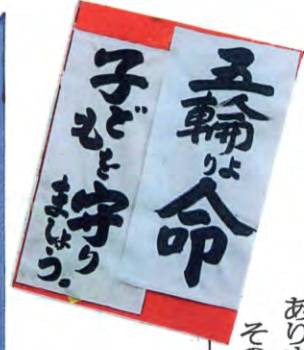 五輪より命
子どもを守りましょう。
あり
その